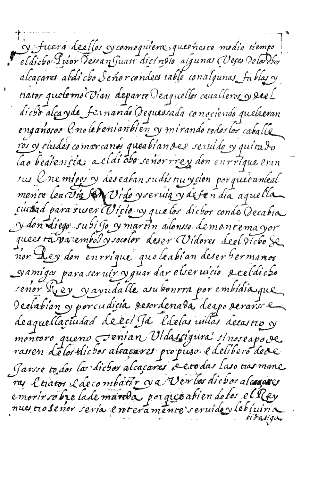 y fuera de ellos y como quiera que en este medio tiempo
el dicho Rui diesen Guasi dictusio algunas Veses de los dos
alcaçares al dicho Señor condestable con algunas fablas y
tratos que le movian de parte de aquellos cavalleros y el
dicho alcayde fernando de quesada conosciendo que eran
engañosos E no le benian bien y mirando todos los caballe
ros y ciudes comarcanos que abian de servido y quitado
la obediencia a el dicho señor rrey don enrrique eran
sus Enemigos y deseaban su distruycion porque tan leal
mente los Via Vido y servia y defendia aquella
ciudad para su serVicio y que los dichos conde de cabra
y don diego su hijo y martin alonso de montemayor
que estava en bos y so color de serVidores de el dicho se
nor Rey don enrrique que le abian de ser hermanos
y amigos para servir y guardar el servicio de el dicho
señor Rey y ayudalle a su onrra por embidia que
de el abian y por cudicia desordenada de apoderarse
de aquella ciudad de ecija E de las villas de castro y
montoro que no tenian Vida sigura si no se apode
rasen de los dichos alcaçares propuso E delibero de de
xarse todos los dichos alcaçares de todas las otras mane
ras E tratos E de combatir y aver los dichos alcaçares
e morir sobre la demanda porque abiendolos el Rey
nuestro señor seria enteramente servido y le biviria